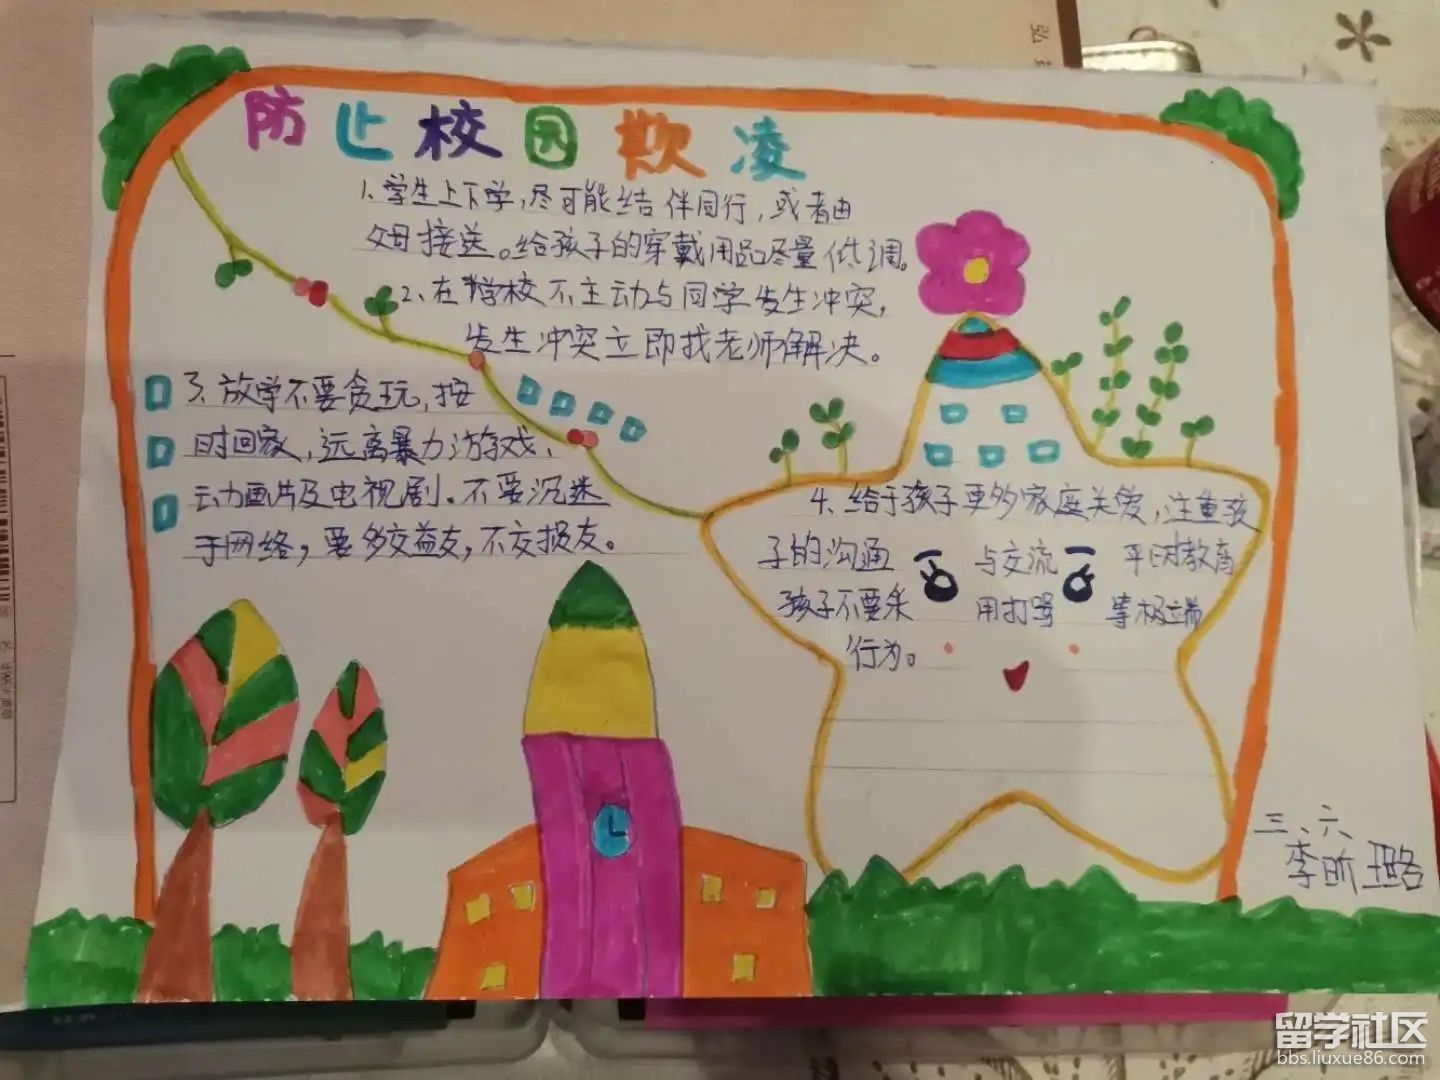 防止校园欺凌
1、学生上下学，尽可能结伴同行，或者由
父母接送。给孩子的穿戴用品尽量低调。
2、在学校不主动与同学发生冲突，
发生冲突立即找老师解决。
3、放学不要贪玩，按
时回家，远离暴力游戏、
动画片及电视剧。不要沉迷
于网络，要多交益友，不交损友。
4、给于孩子更多家庭关爱，注重孩
子的沟通 与交流 平时教育
孩子不要采 用打骂 等极端
行为。
三、六、
李昕璐
留学社区
bbs.liuxue86.com